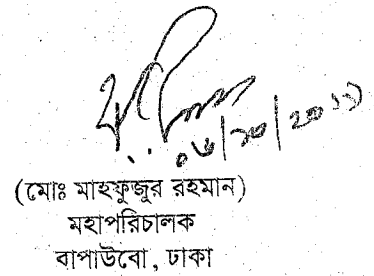 ০৬/১০/২০১১
(মোঃ মাহফুজুর রহমান)
মহাপরিচালক
বাপাউবো, ঢাকা